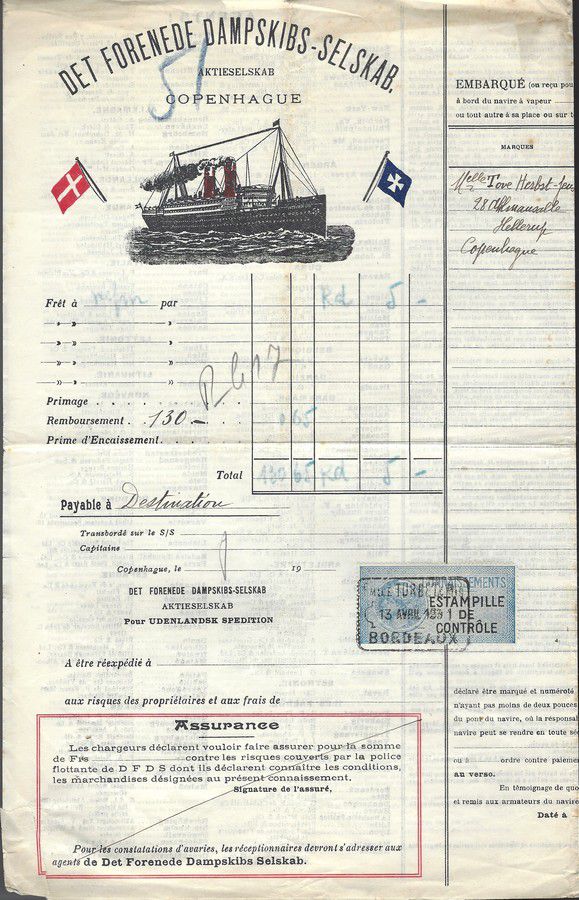 DET FORENEDE DAMPSKIBS-SELSKAB.
AKTIESELSKAB
COPENHAGUE
51
Frêt à par Kd 5 -
" " "
" " "
" " "
" " "
Primage
Remboursement 130 - 65
Prime d'Encaissement
Total 130 65 Kd 5 -
Payable à Destination
Transbordé sur le S/S
Capitaine
Copenhague, le 19
DET FORENEDE DAMPSKIBS-SELSKAB
AKTIESELSKAB
Pour UDENLANDSK SPEDITION
A être réexpédié à
aux risques des propriétaires et aux frais de
Assurance
Les chargeurs déclarent vouloir faire assurer pour la somme
de Frs contre les risques couverts par la police
flottante de D F D S dont ils déclarent connaître les conditions,
les marchandises désignées au présent connaissement.
Signature de l'assuré,
Pour les constatations d'avaries, les réceptionnaires devront s'adresser aux
agents de Det Forenede Dampskibs Selskab.
EMBARQUÉ (ou reçu pou
à bord du navire à vapeur
ou tout autre à sa place ou sur t
MARQUES
Melle Tove Herbst-Jen
28
Hellerup
Copenhague
ESTAMPILLE
DE
CONTRÔLE
13 AVRIL 1931
BORDEAUX
déclaré être marqué et numéroté
n'ayant pas moins de deux pouces
du pont du navire, où la responsal
navire peut se rendre en toute sé
ou à ordre contre paieme
au verso.
En témoignage de quo
et remis aux armateurs du navire
Daté à